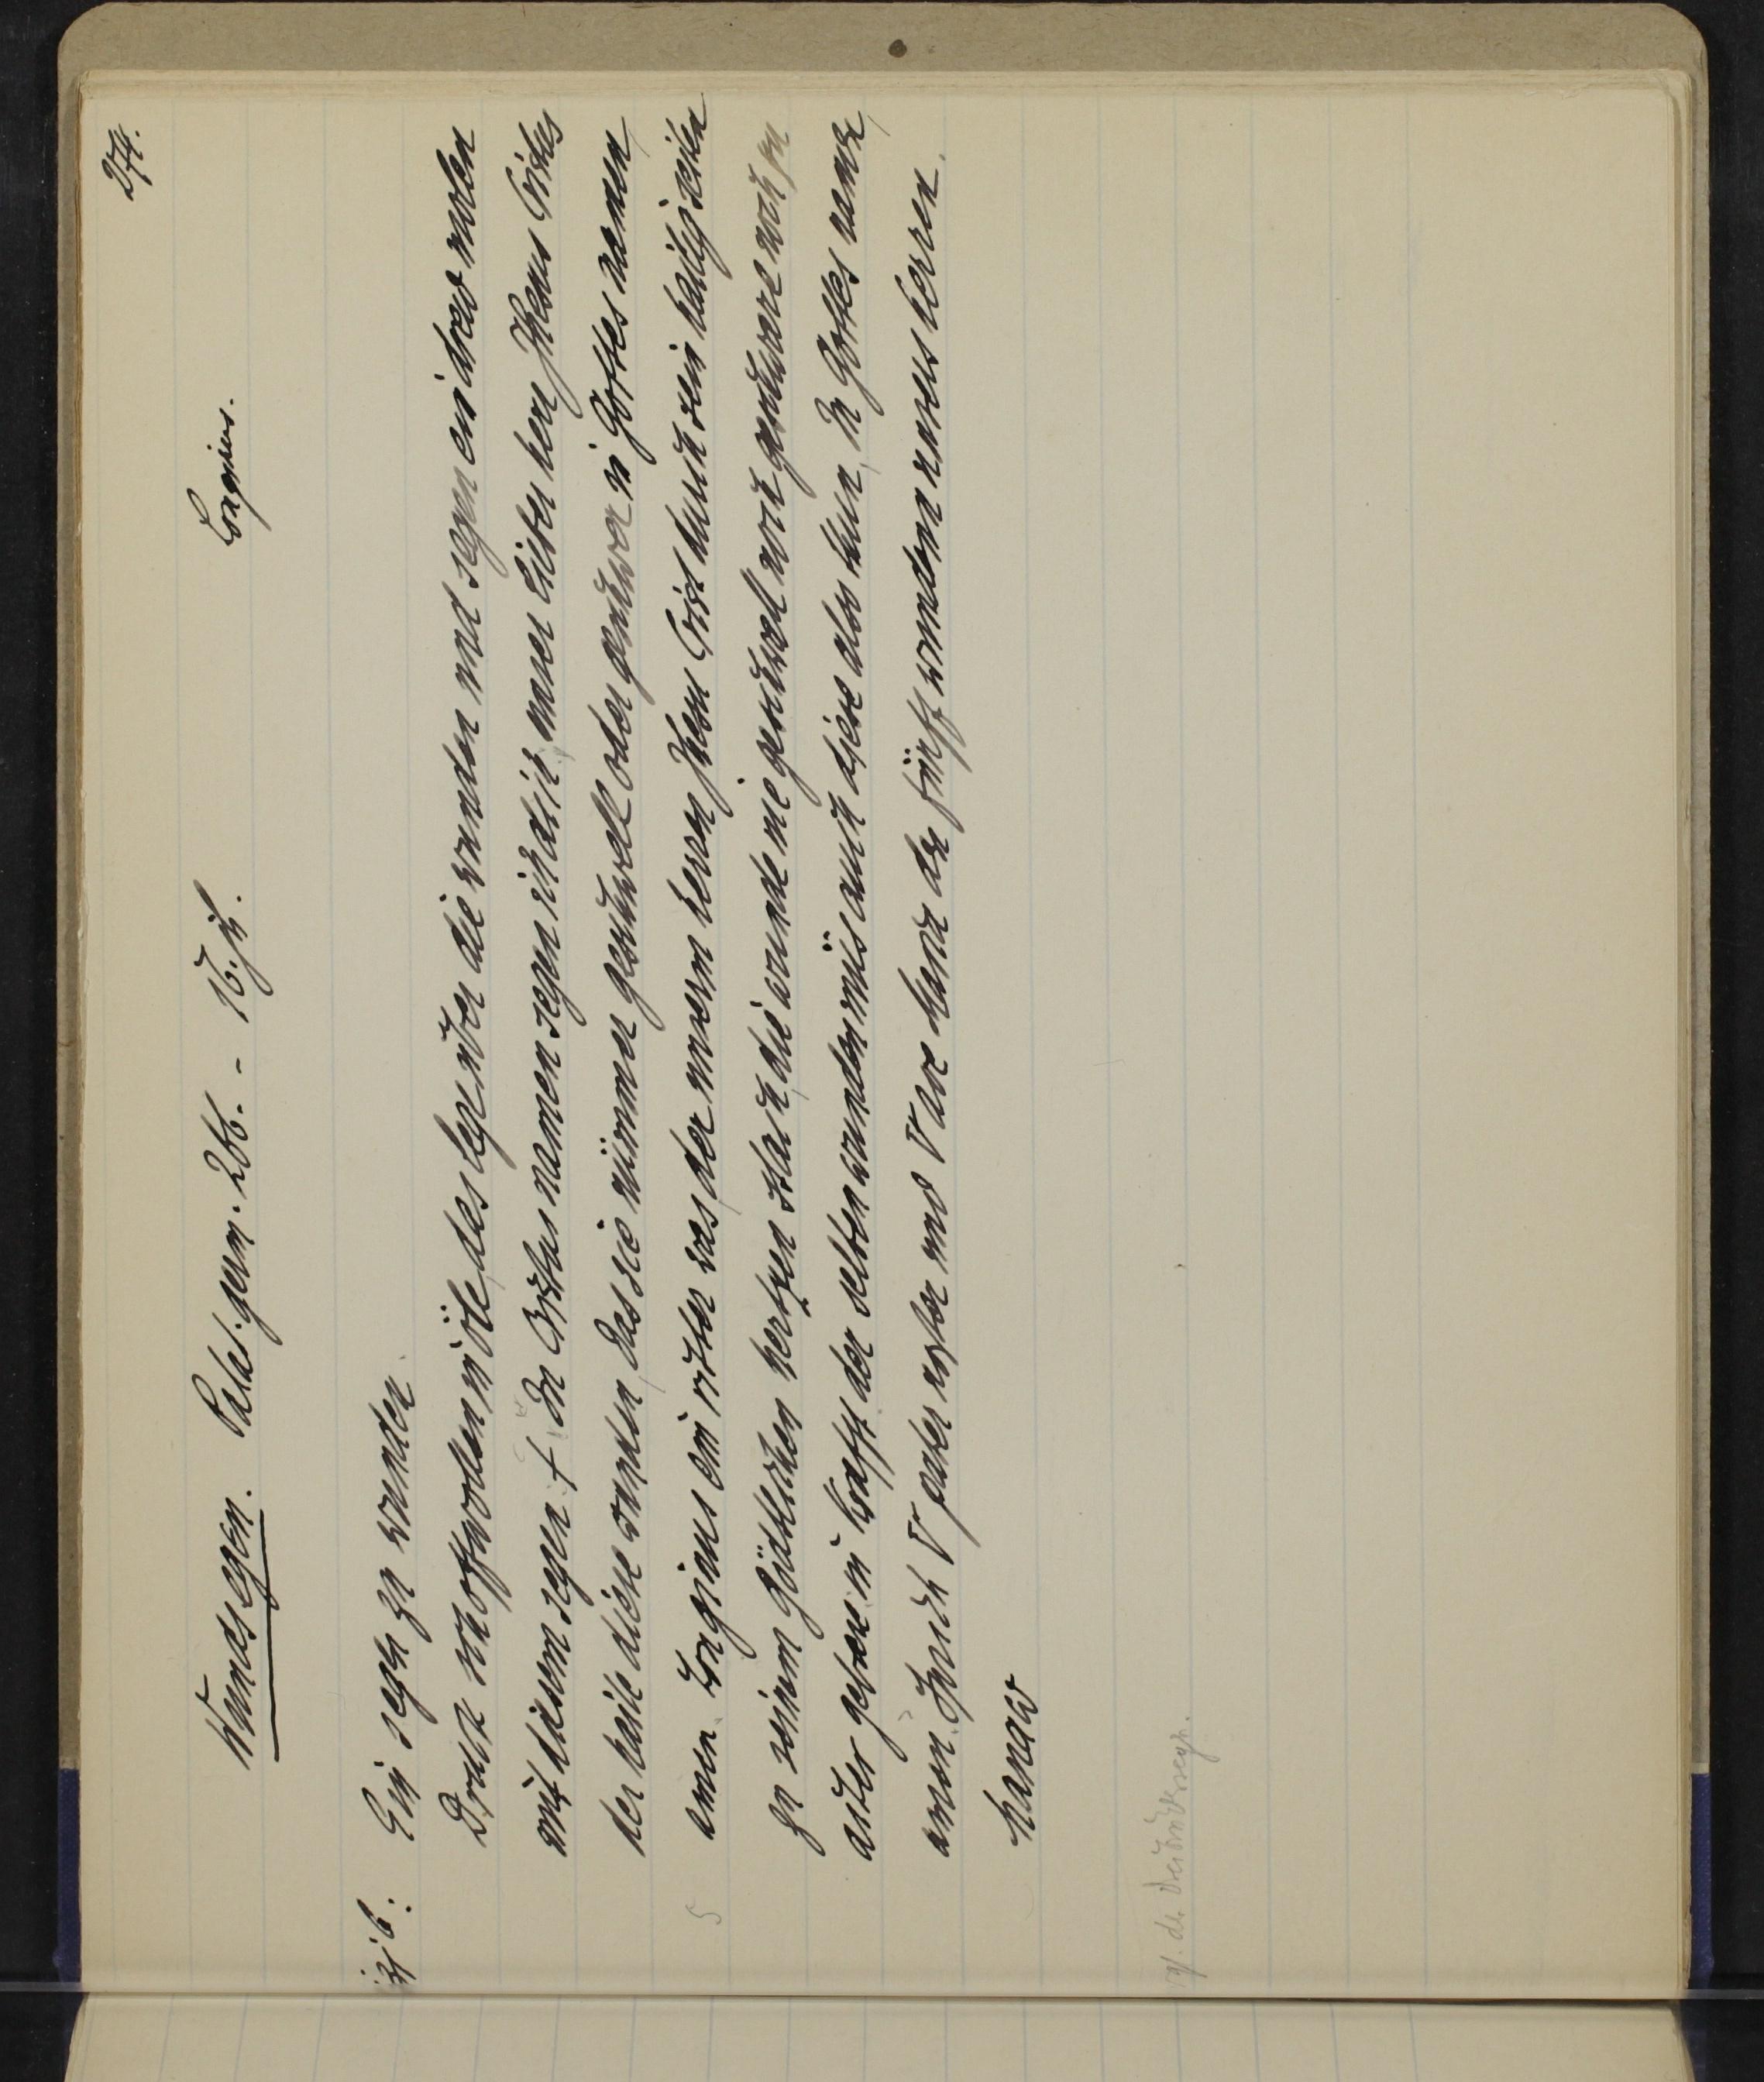 274.
Wundsegen. Palat. germ. 266. - 16. Jh. Longinus.
Ein segen zu wunden.
Druck schoffwollen in öle, das leg uber die wunden und segen ein drew molen
mit disem segen † In Cristus namen segen ich dich, unser lieber herr Jhesus Cristus
der haile diese wunden, das sie nimmer geschwelle oder geschwer in Gottes namen
amen. Longinus ein ritter was, der unserm herren Jhesu Crist durch sein heilig seiten
5
zu seinem Göttlichen hertzen stach, die wunde nie geschwall noch geschware noch
aiter gebere in krafft der selben wunden müs auch diese also thun, In Gottes name,
amen. Sprich V pater noster und V ave Maria den fünff wunden unsers herren.
hanaw
vgl. de